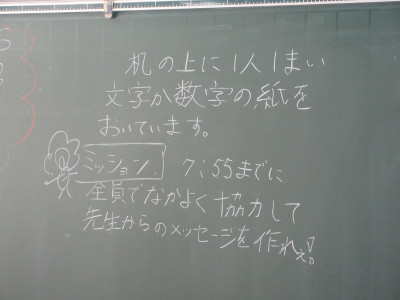 机の上に1人1まい
文字か数字の紙を
おいています。
ミッション 7:55までに
全員でなかよく協力して
先生からのメッセージを作れぇ!